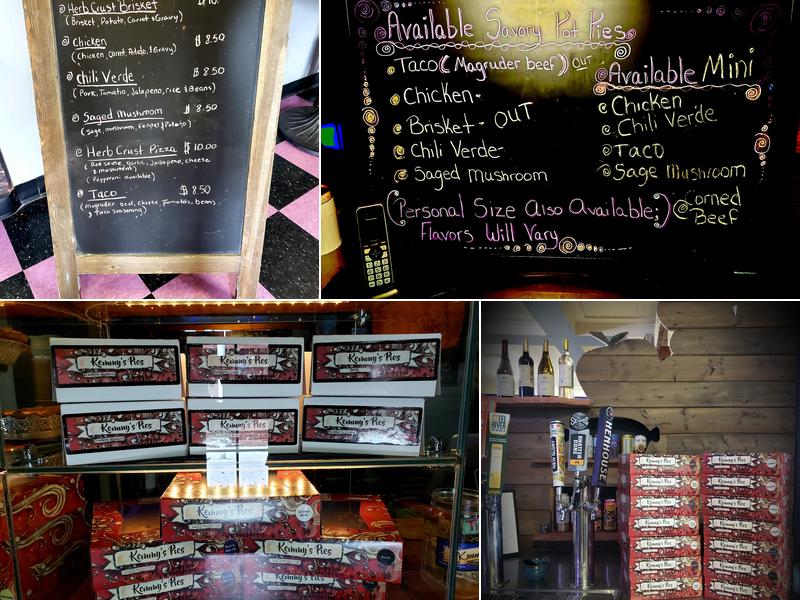 Herb Crust Brisket
(Brisket, Potato, Carrot & Gravy)
Chicken $ 8.50
(Chicken, Carrot, Potato, & Gravy)
Chili Verde $ 8.50
(Pork, Tomatio, Jalapeno, rice & Beans)
Saged Mushroom $ 8.50
(Sage, mushroom, Fennel & Potato)
Herb Crust Pizza $ 10.00
(Red sauce, garlic, Jalapeno, cheese
& mushroom)
(Pepperoni available)
Taco $ 8.50
(magruder beef, cheese, Tomatoes, beans,
& taco seasoning)
Available Savory Pot Pies
Taco (Magruder beef) OUT
Chicken-
Brisket- OUT
Chili Verde-
Saged Mushroom
Available Mini
Chicken
Chili Verde
Taco
Sage Mushroom
Corned
Beef
(Personal Size Also Available;)
Flavors Will Vary
Kemmy's Pies
Kemmy's Pies
Kemmy's Pies
Kemmy's Pies
Kemmy's Pies
Kemmy's Pies
Kemmy's Pies
Kemmy's Pies
Kemmy's Pies
Kemmy's Pies
Kemmy's Pies
EEL
RIVER
HENHOUSE
Kemmy's Pies
Kemmy's Pies
Kemmy's Pies
Kemmy's Pies
Kemmy's Pies
Kemmy's Pies
Kemmy's Pies
Kemmy's Pies
Kemmy's Pies
Kemmy's Pies
Kemmy's Pies
Kemmy's Pies
Kemmy's Pies
Kemmy's Pies